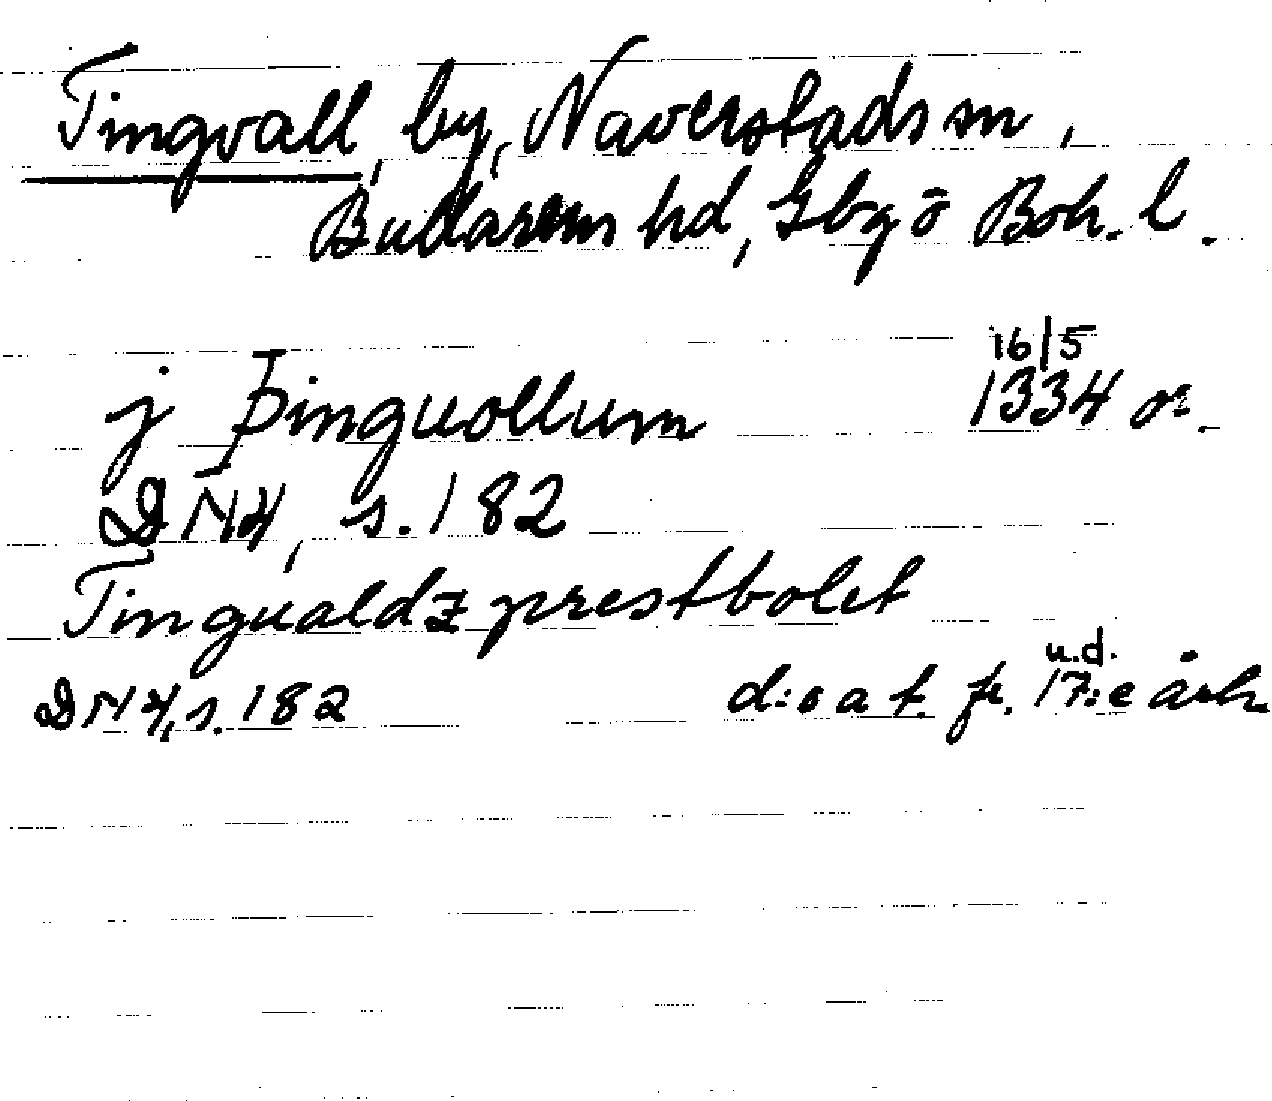 Tingvall, by, Naverstads sn,
Bullarens hd, Gbg ö Boh. l.
16/5
j Þinguollum 1334 or.
DN 4, s. 182
Tingualdz prestbolet
u.d.
DN 4, s. 182 d:o a t. fr. 17:e årh.